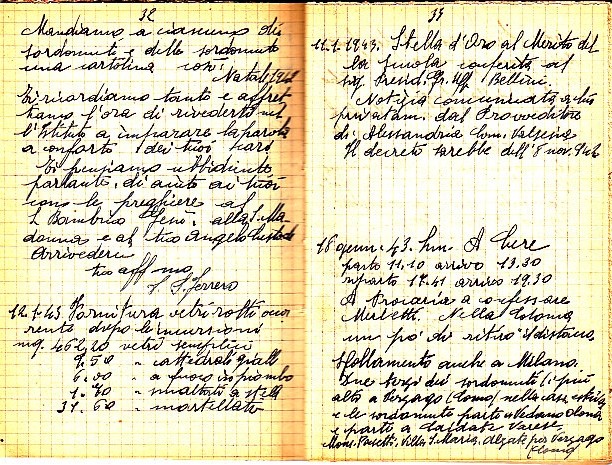 32
Mandiamo a ciascuno dei
sordomuti e delle sordomute
una cartolina così:
Natale 1942
Ti ricordiamo tanto e affret
tiamo l'ora di rivederti nel
l'Istituto a imparare la parola
a conforto dei tuoi cari
Ti pensiamo ubbidiente
parlante, di aiuto ai tuoi
con le preghiere al
S. Bambino Gesù, alla S. Ma
donna e al tuo Angelo Custode
Arrivederci
tuo aff mo
S. Ferrero
12.1.43 Fornitura vetri rotti
dopo le incursioni
mq. 462,20 vetri semplici
9.50 " cattedrali gialli
6.00 " a fuoco in piombo
1.70 " smaltati a stella
31.60 " martellato
33
11.1.1943. Stella d'Oro al Merito del
la Scuola conferita al
Sig. Presid. Gr. Uff. Bellini.
Notizia comunicata
privatam. dal Provveditore
di Alessandria Com.
Il decreto sarebbe dell'8 nov. 942
18 genn. 43. A Cere
parto 11.10 arrivo 13.30
riparto 17.41 arrivo 19.30
A confessare
Nella
un po' di ritiro
Sfollamento anche a Milano.
Due terzi dei sordomuti (i più
alto a Verzago (Como) nella casa estiva
e le sordomute parte a Vedano Olona
e parte a Caidate Varese
Mons. Pasetti, Villa S. Maria, Alzate per Verzago
(Como)